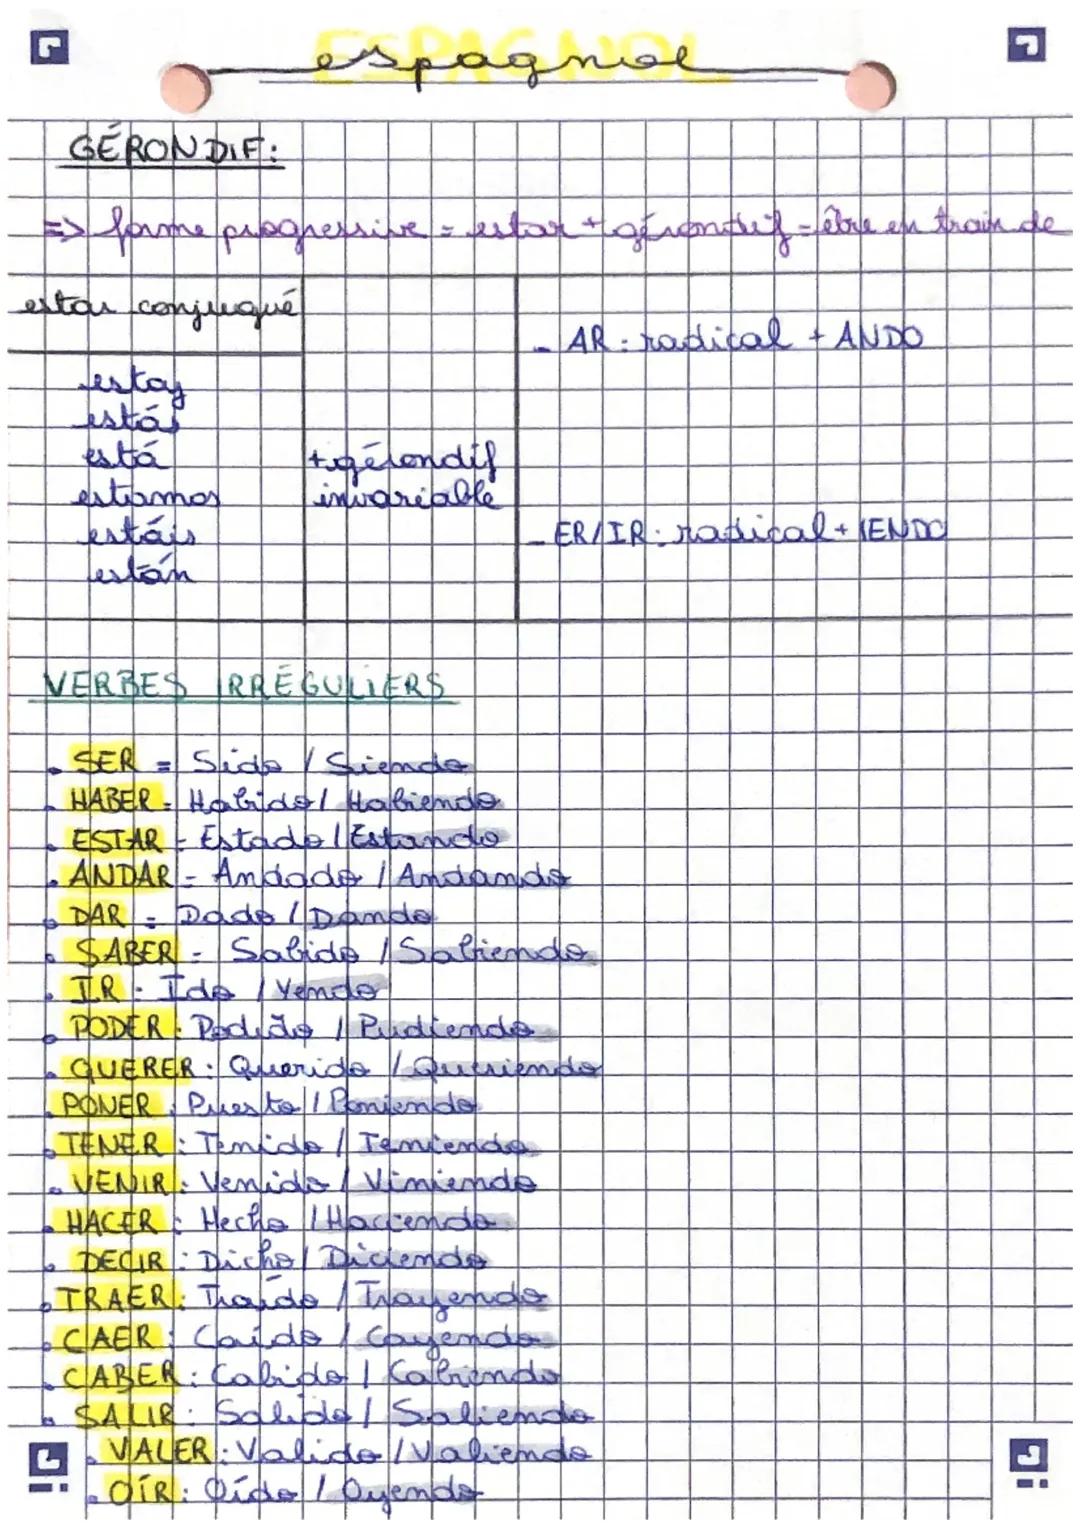 ESPAGNOL
espagnol
GÉRONDIF:
=> forme progressive = estar + gérondif = être en train de
estar conjugué
- AR : radical + ANDO
estoy
estás
está
+ gérondif
estamos
invariable
estáis
- ER/IR : radical + IENDO
están
VERBES IRRÉGULIERS
• SER = Sido / Siendo
• HABER = Habido / Habiendo
• ESTAR = Estado / Estando
• ANDAR = Andado / Andando
• DAR = Dado / Dando
• SABER = Sabido / Sabiendo
• IR : Ido / Yendo
• PODER : Podido / Pudiendo
• QUERER : Querido / Queriendo
• PONER : Puesto / Poniendo
• TENER : Tenido / Teniendo
• VENIR : Venido / Viniendo
• HACER : Hecho / Haciendo
• DECIR : Dicho / Diciendo
• TRAER : Traído / Trayendo
• CAER : Caído / Cayendo
• CABER : Cabido / Cabiendo
• SALIR : Salido / Saliendo
• VALER : Valido / Valiendo
• OÍR : Oído / Oyendo